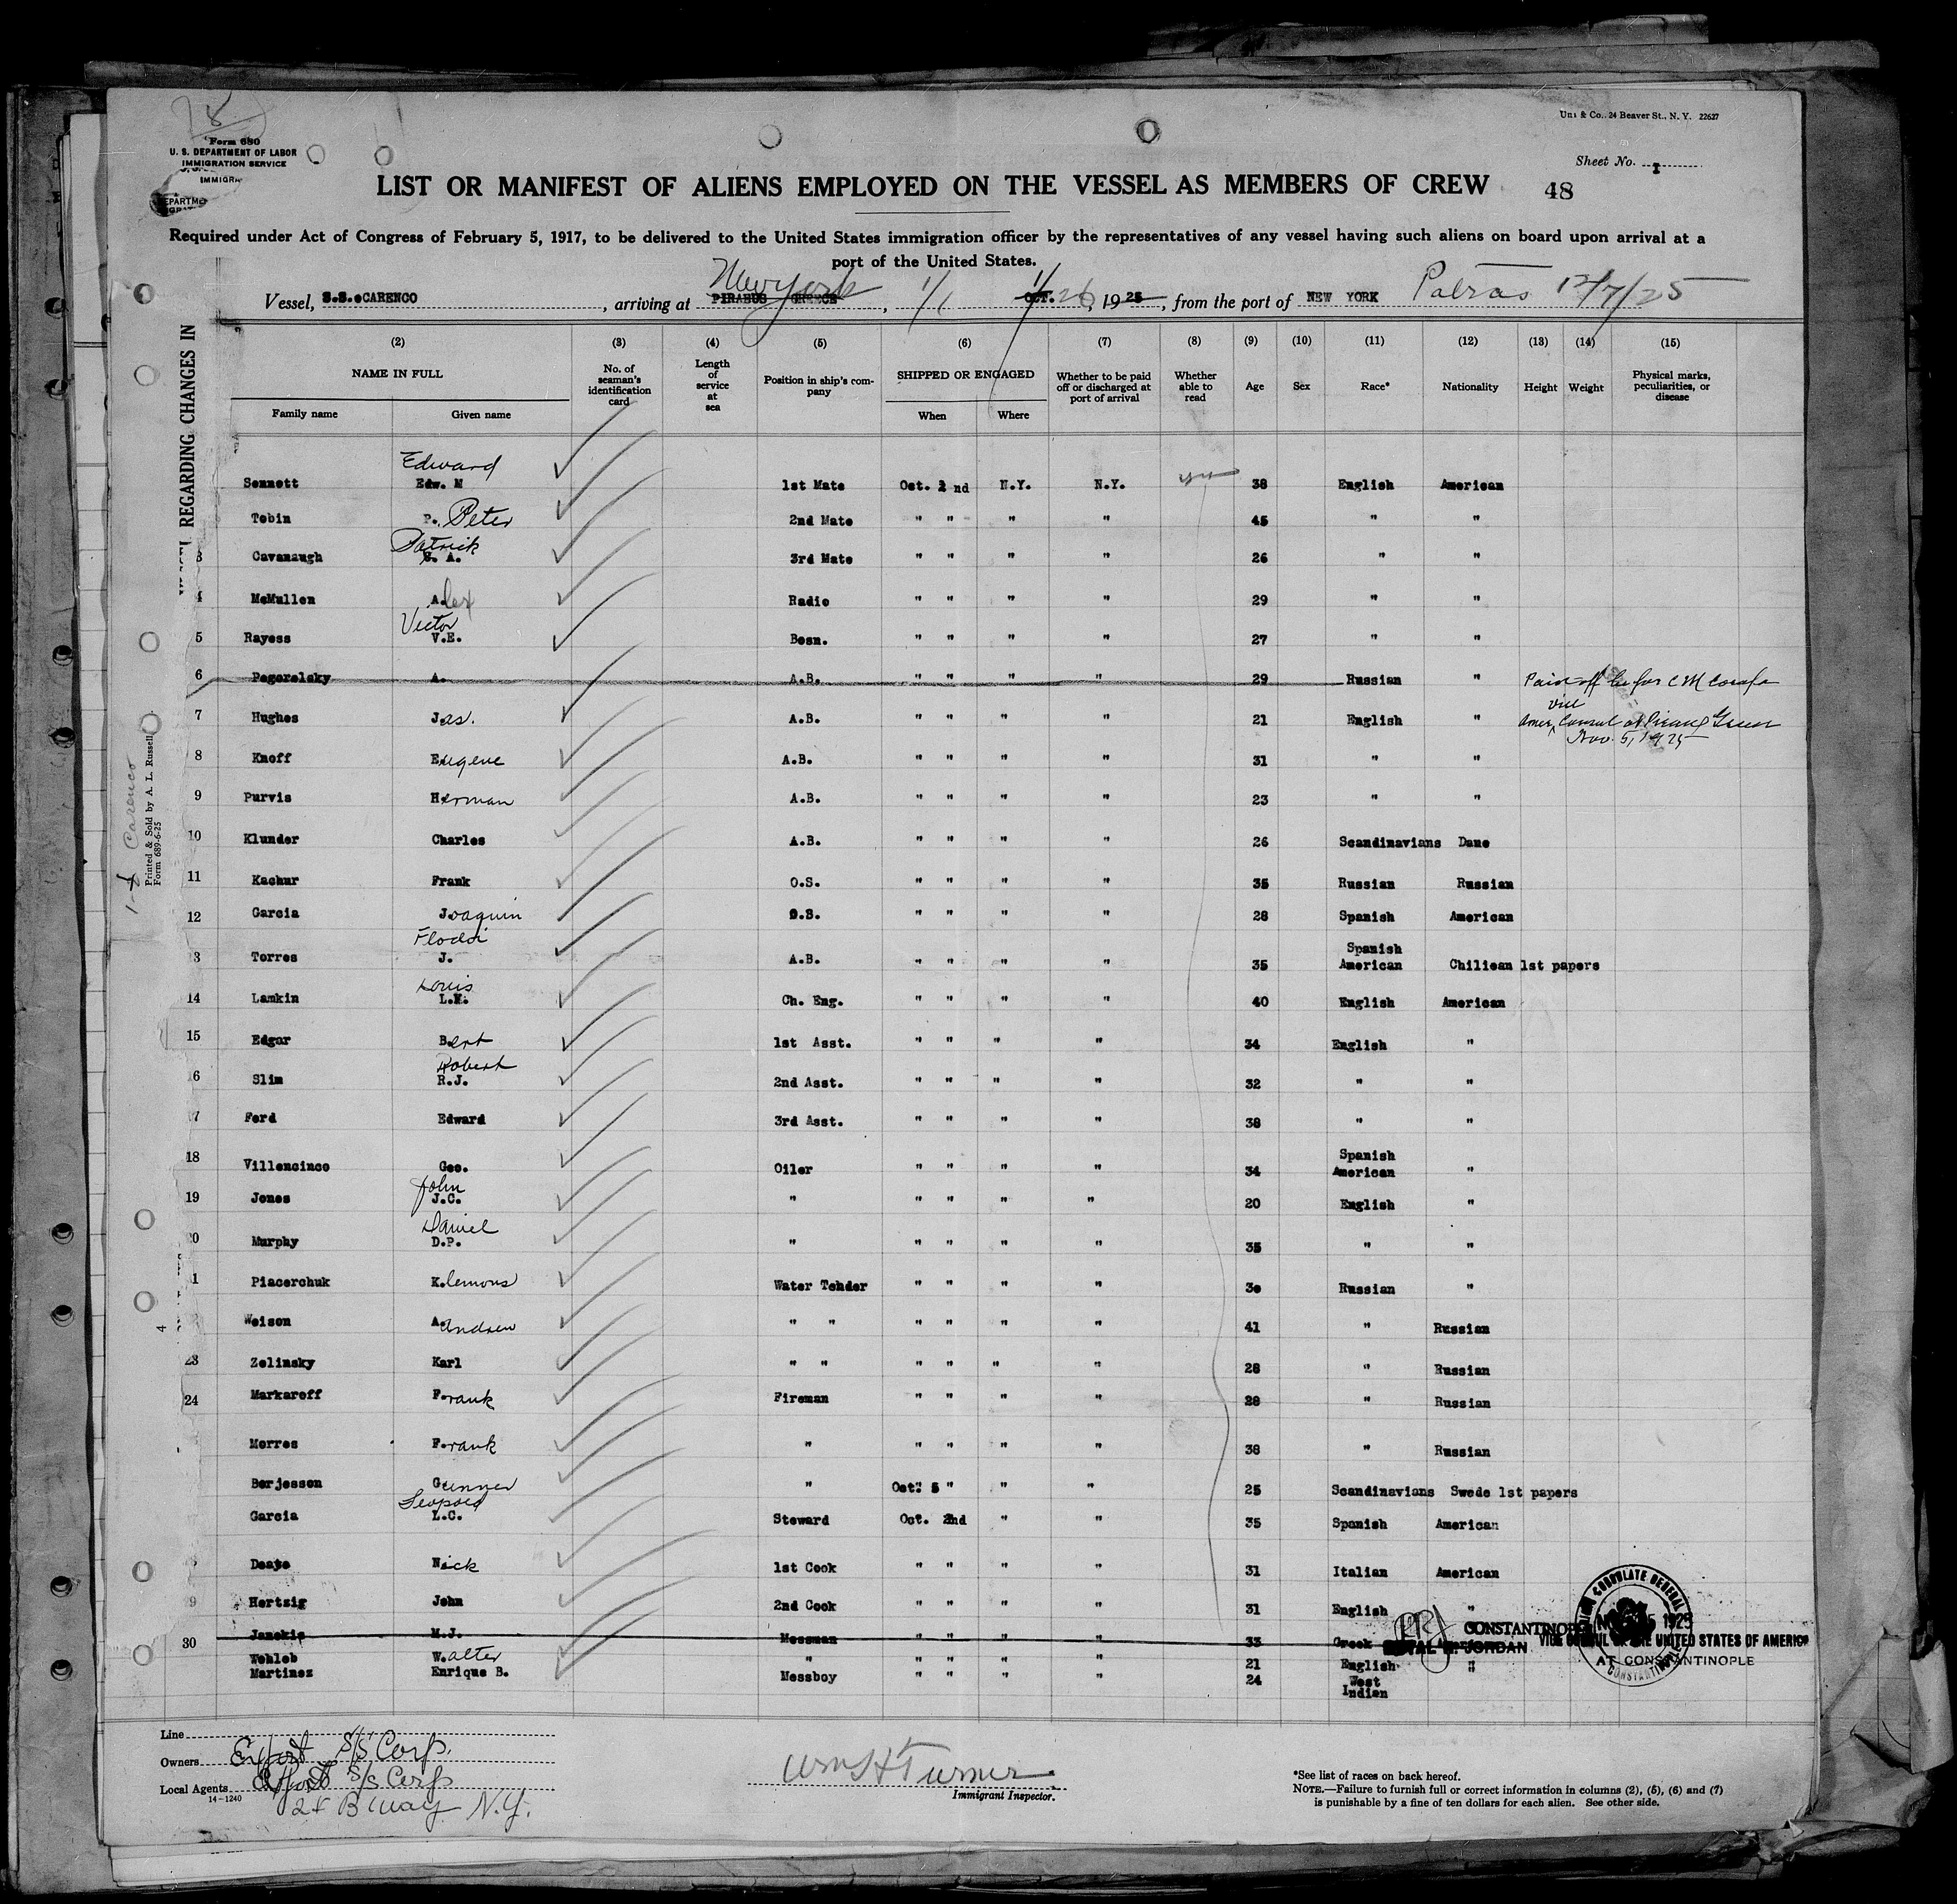 Form 680
U. S. DEPARTMENT OF LABOR
IMMIGRATION SERVICE
IMMIGRA
EPARTME
Uni & Co., 24 Beaver St., N. Y. 22627
Sheet No. I
LIST OR MANIFEST OF ALIENS EMPLOYED ON THE VESSEL AS MEMBERS OF CREW
48
Required under Act of Congress of February 5, 1917, to be delivered to the United States immigration officer by the representatives of any vessel having such aliens on board upon arrival at a
port of the United States.
Vessel, S.S. CARENCO, arriving at PIRAEUS GREECE New York, 1/1 OCT. 26, 1925, from the port of NEW YORK Patras 12/7/25
REGARDING CHANGES IN
(2) (3) (4) (5) (6) (7) (8) (9) (10) (11) (12) (13) (14) (15)
NAME IN FULL No. of seaman's identification card Length of service at sea Position in ship's company SHIPPED OR ENGAGED Whether to be paid off or discharged at port of arrival Whether able to read Age Sex Race* Nationality Height Weight Physical marks, peculiarities, or disease
Family name Given name When Where
Edward
Sennett Edw. M 1st Mate Oct. 2 nd N.Y. N.Y. yes 38 English American
Tobin P. Peter 2nd Mate " " " " 45 " "
Patrick
3 Cavanaugh S. A. 3rd Mate " " " " 26 " "
4 McMullen Alex Radio " " " " 29 " "
Victor
5 Rayess V.E. Bosn. " " " " 27 " "
6 Pogorelsky A. A.B. " " " " 29 Russian " Paid off before
7 Hughes Jas. A.B. " " " " 21 English " Amer. Consul at Piraeus Greece
Nov. 5, 1925
8 Knoff Eugene A.B. " " " " 31 " "
9 Purvis Herman A.B. " " " " 23 " "
10 Klunder Charles A.B. " " " " 26 Scandinavians Dane
11 Kachur Frank O.S. " " " " 35 Russian Russian
12 Garcia Joaquin O.S. " " " " 28 Spanish American
13 Torres J. A.B. " " " " 35 Spanish American Chiliean 1st papers
Louis
14 Lamkin L.M. Ch. Eng. " " " " 40 English American
15 Edgar Bert 1st Asst. " " " " 34 English "
Robert
16 Slim R.J. 2nd Asst. " " " " 32 " "
17 Ford Edward 3rd Asst. " " " " 38 " "
18 Villencinco Geo. Oiler " " " " 34 Spanish American "
John
19 Jones J.C. " " " " " 20 English "
Daniel
20 Murphy D.P. " " " " " 35 " "
1 Piacerchuk Klemons Water Tender " " " " 30 Russian "
Weison A. Andrew " " " " " " 41 " Russian
23 Zelinsky Karl " " " " " " 28 " Russian
24 Markaroff Frank Fireman " " " " 28 " Russian
Morres Frank " " " " " 38 " Russian
Borjessen Gunner " Oct. 5 " " " 25 Scandinavians Swede 1st papers
Leopold
Garcia L.C. Steward Oct. 2nd " " 35 Spanish American
Deayo Nick 1st Cook " " " " 31 Italian American
9 Hertzig John 2nd Cook " " " " 31 English "
30 Janokis M.J. Messman " " " " 33 Greek
Wohleb Walter " " " " " 21 English "
Martinez Enrique B. Messboy " " " " 24 West Indian "
CONSTANTINOPLE
JORDAN
VICE CONSUL OF THE UNITED STATES OF AMERICA
AT CONSTANTINOPLE
CONSULATE GENERAL
1925
CONSTANTINOPLE
1-d Carenco
Printed & Sold by A. L. Russell
Form 689-6-25
4
Line
Owners Export S/S Corp.
Local Agents Export S/S Corp
14-1240
24 B'way N.Y.
Wm H Turner
Immigrant Inspector.
*See list of races on back hereof.
NOTE.—Failure to furnish full or correct information in columns (2), (5), (6) and (7)
is punishable by a fine of ten dollars for each alien. See other side.